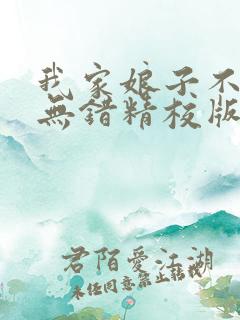 我家娘子不
無錯精校版
君陌愛江湖
未任同意禁止轉載